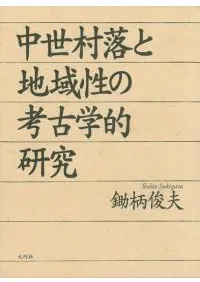 中世村落と
地域性の
考古学的
研究
Toshio Sukigara
鋤柄俊夫
大巧社